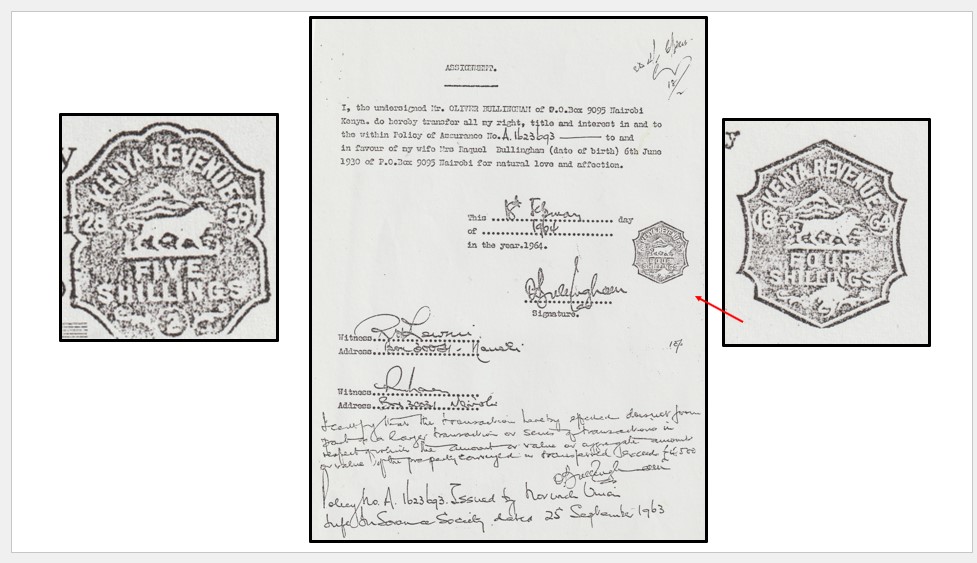 KENYA REVENUE
28 59
FIVE
SHILLINGS
ASSIGNMENT.
I, the undersigned Mr. OLIVER BULLINGHAM of P.O.Box 9095 Nairobi
Kenya. do hereby transfer all my right, title and interest in and to
the within Policy of Assurance No. A.1623693 to and
in favour of my wife Mrs Raquel Bullingham (date of birth) 6th June
1930 of P.O.Box 9095 Nairobi for natural love and affection.
This 18th February day
of 1964
in the year.1964.
KENYA REVENUE
FOUR
SHILLINGS
Signature.
Witness
Address Box 30031 Nairobi
Witness
Address Box 30031 Nairobi
I certify that the transaction hereby effected does not form
part of a larger transaction or series of transactions in
respect of which the amount or value or aggregate amount
or value of the property conveyed or transferred exceed £4,500
Policy No. A.1623693. Issued by Norwich Union
Life Insurance Society dated 25 September 1963
KENYA REVENUE
18
FOUR
SHILLINGS